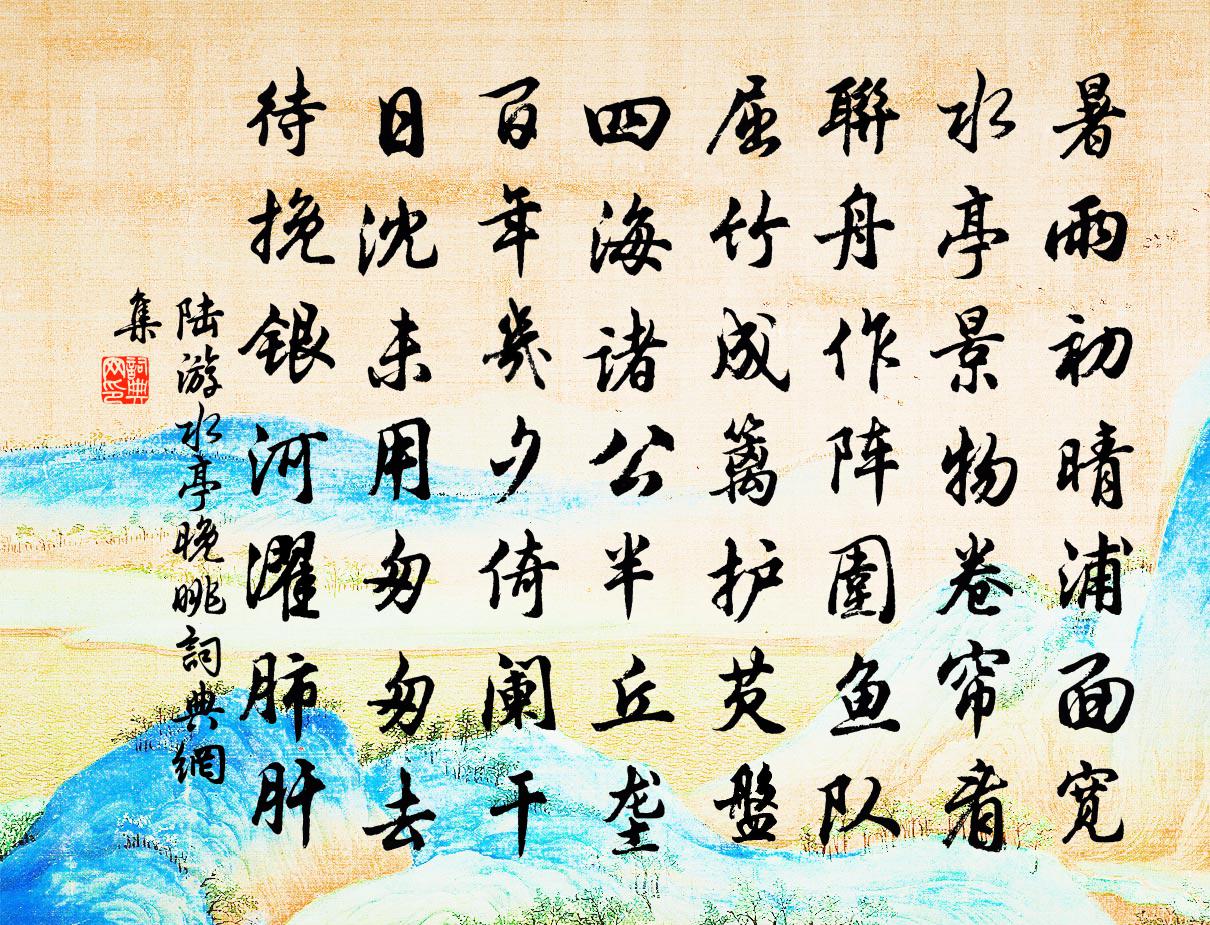 暑雨初晴浦面宽
水亭景物卷帘看
聯舟作阵圍鱼队
屈竹成篱护芡盤
四海诸公半丘垄
百年幾夕倚阑干
日沈未用匆匆去
待挽银河濯肺肝
陆游水亭晚眺詞典網
集
詞典网印